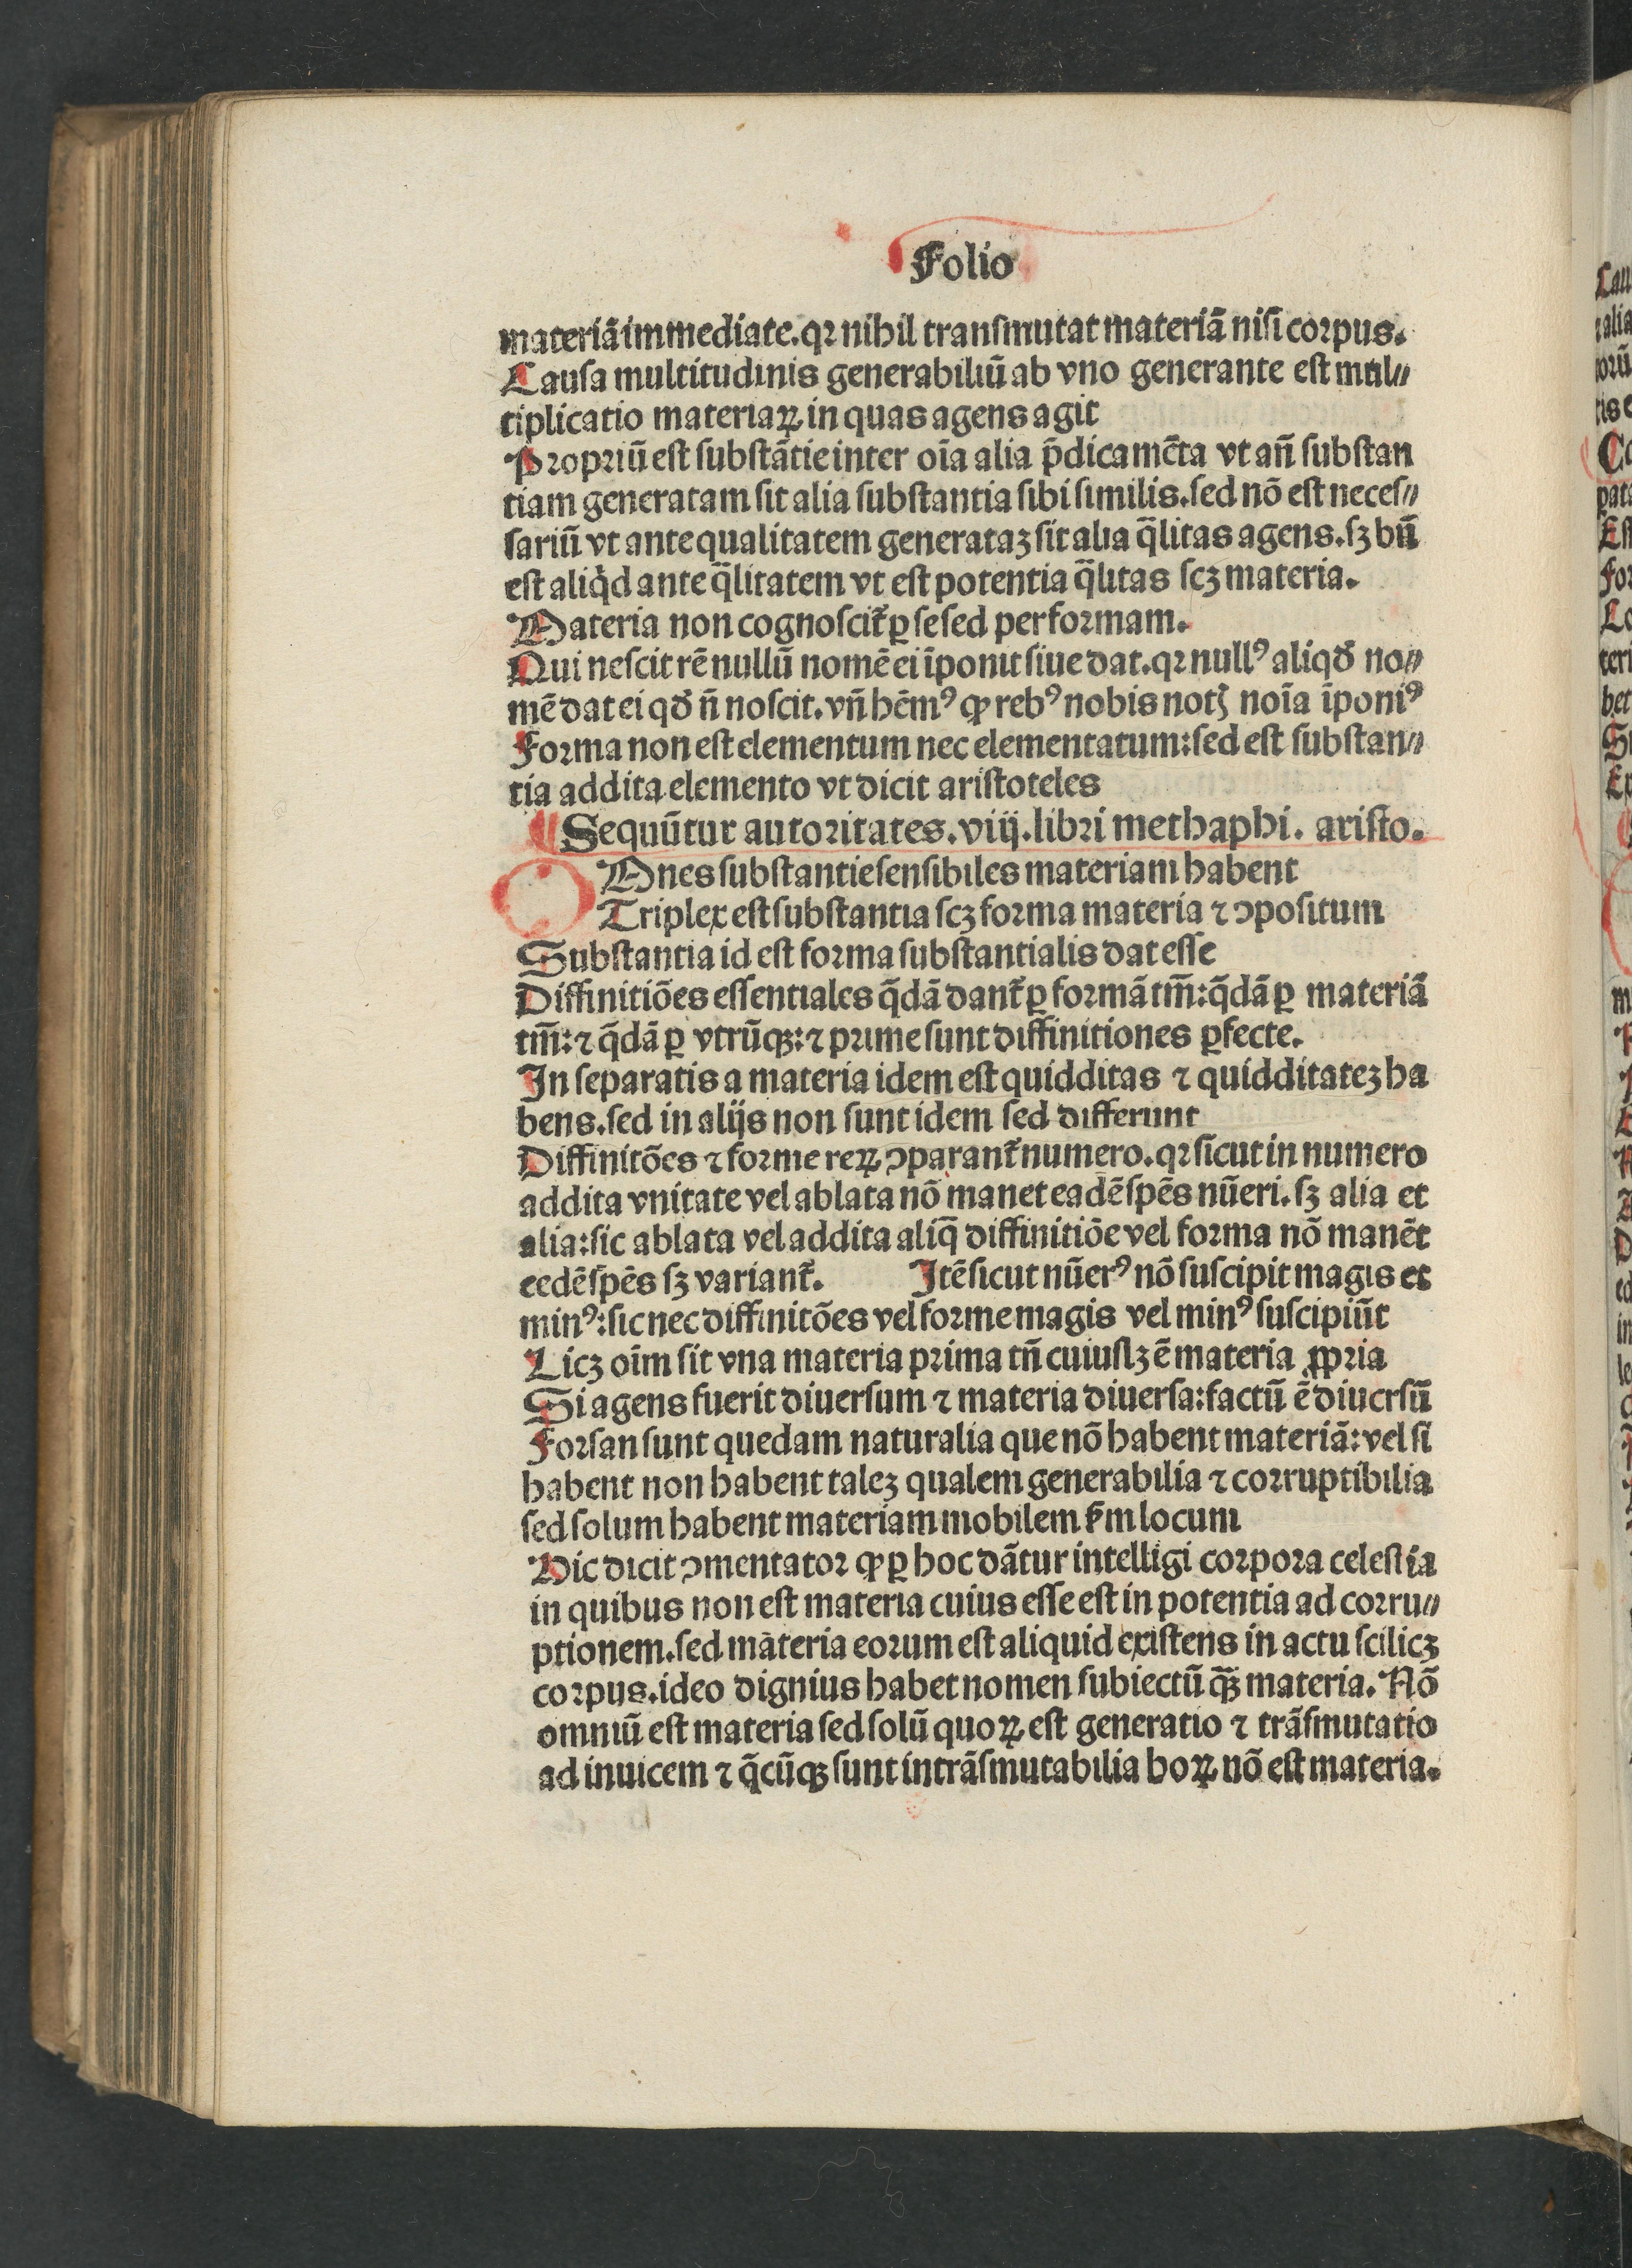 Folio
materiā immediate. qꝛ nihil tranſmutat materiā niſi corpus.
Cauſa multitudinis generabiliū ab vno generante eſt mul⸗
tiplicatio materiaꝝ in quas agens agit
Propriū eſt ſubſtātie inter oīa alia p̄dicamēta vt an̄ ſubſtan
tiam generatam ſit alia ſubſtantia ſibi ſimilis. ſed nō eſt neceſ⸗
ſariū vt ante qualitatem generataꝫ ſit alia q̄litas agens. ſꝫ bn̄
eſt aliqd̓ ante q̄litatem vt eſt potentia q̄litas ſcꝫ materia.
Materia non cognoſcit᷑ ꝑ ſe ſed per formam.
Qui neſcit rē nullū nomē ei īponit ſiue dat. qꝛ nullꝰ aliqđ no⸗
mē dat ei qđ n̄ noſcit. vn̄ hēmꝰ ꝙ rebꝰ nobis notꝭ noīa īponiꝰ
Forma non eſt elementum nec elementatum: ſed eſt ſubſtan⸗
tia addita elemento vt dicit ariſtoteles
¶ Sequūtur autoritates. viij. libri methaphi. ariſto.
OMnes ſubſtantie ſenſibiles materiam habent
Triplex eſt ſubſtantia ſcꝫ forma materia ⁊ ꝯpoſitum
Subſtantia id eſt forma ſubſtantialis dat eſſe
Diffinitiōes eſſentiales q̄dā dant᷑ ꝑ formā tm̄: q̄dā ꝑ materiā
tm̄: ⁊ q̄dā ꝑ vtrūqꝫ: ⁊ prime ſunt diffinitiones ꝑfecte.
In ſeparatis a materia idem eſt quidditas ⁊ quidditateꝫ ha
bens. ſed in alijs non ſunt idem ſed differunt
Diffinitōes ⁊ forme reꝝ ꝯparant᷑ numero. qꝛ ſicut in numero
addita vnitate vel ablata nō manet eadē ſpēs nūeri. ſꝫ alia et
alia: ſic ablata vel addita aliq̄ diffinitiōe vel forma nō manēt
eedē ſpēs ſꝫ variant᷑. Itē ſicut nūerꝰ nō ſuſcipit magis et
minꝰ: ſic nec diffinitōes vel forme magis vel minꝰ ſuſcipiūt
Licꝫ oīm ſit vna materia prima tn̄ cuiuſlꝫ ē materia ꝓpria
Si agens fuerit diuerſum ⁊ materia diuerſa: factū ē diuerſū
Forſan ſunt quedam naturalia que nō habent materiā: vel ſi
habent non habent taleꝫ qualem generabilia ⁊ corruptibilia
ſed ſolum habent materiam mobilem ẜm locum
Hic dicit ꝯmentator ꝙ ꝑ hoc dātur intelligi corpora celeſtia
in quibus non eſt materia cuius eſſe eſt in potentia ad corru⸗
ptionem. ſed materia eorum eſt aliquid exiſtens in actu ſcilicꝫ
corpus. ideo dignius habet nomen ſubiectū qꝫ̄ materia. Nō
omniū eſt materia ſed ſolū quoꝝ eſt generatio ⁊ trāſmutatio
ad inuicem ⁊ q̄cūqꝫ ſunt intrāſmutabilia hoꝝ nō eſt materia.